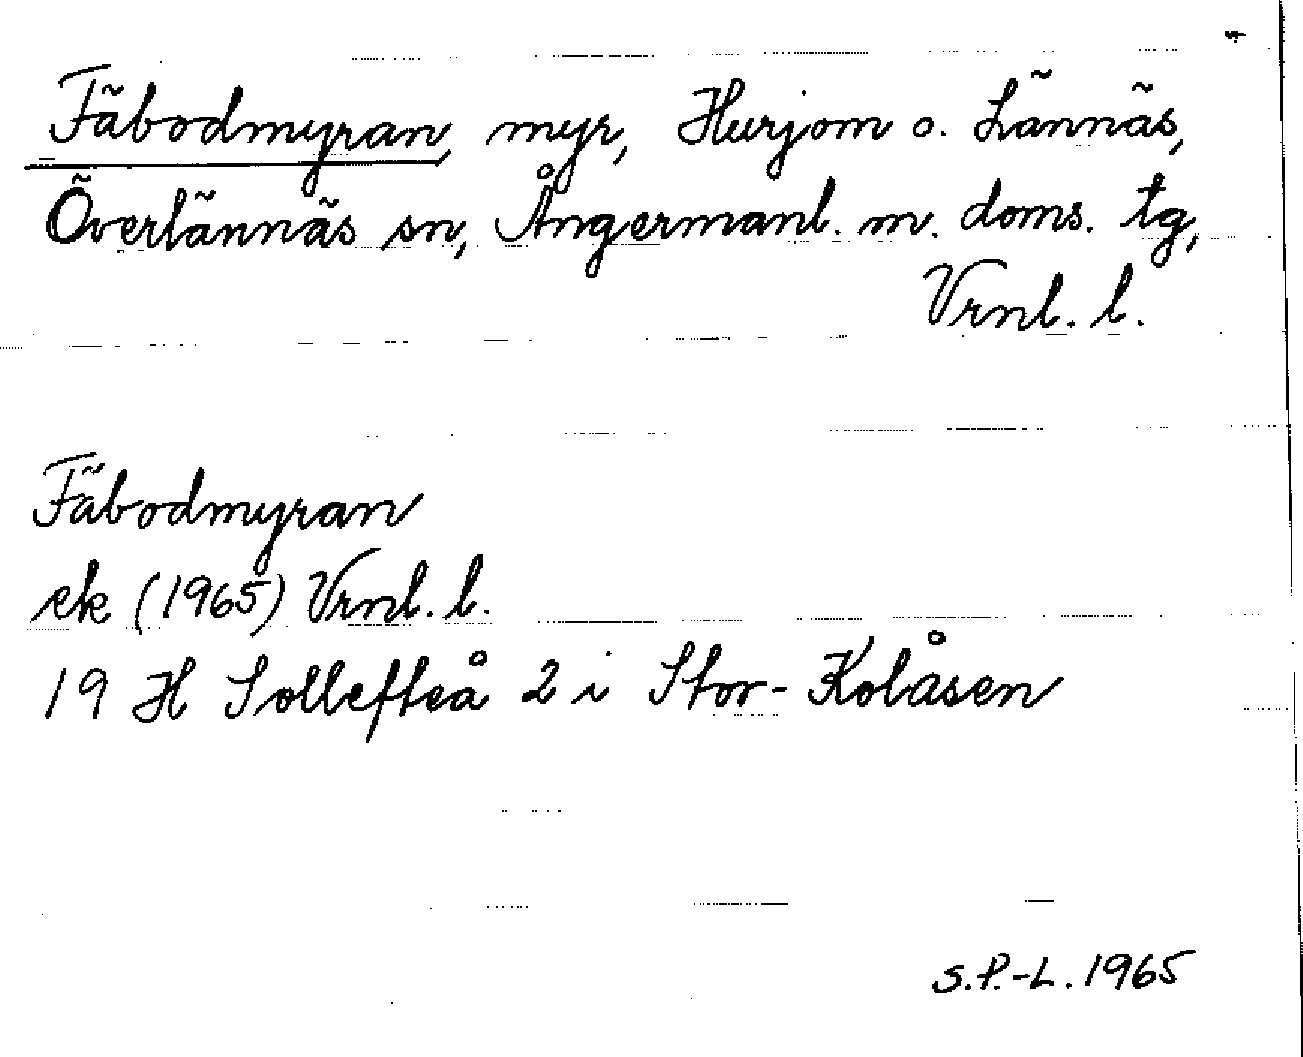 Fäbodmyran, myr, Hurjom o. Lännäs,
Överlännäs sn, Ångermanl. m. doms. tg,
Vrnl. l.
Fäbodmyran
ek (1965) Vrnl. l.
19 H Sollefteå 2 i Stor-Kolåsen
S.P.-L. 1965